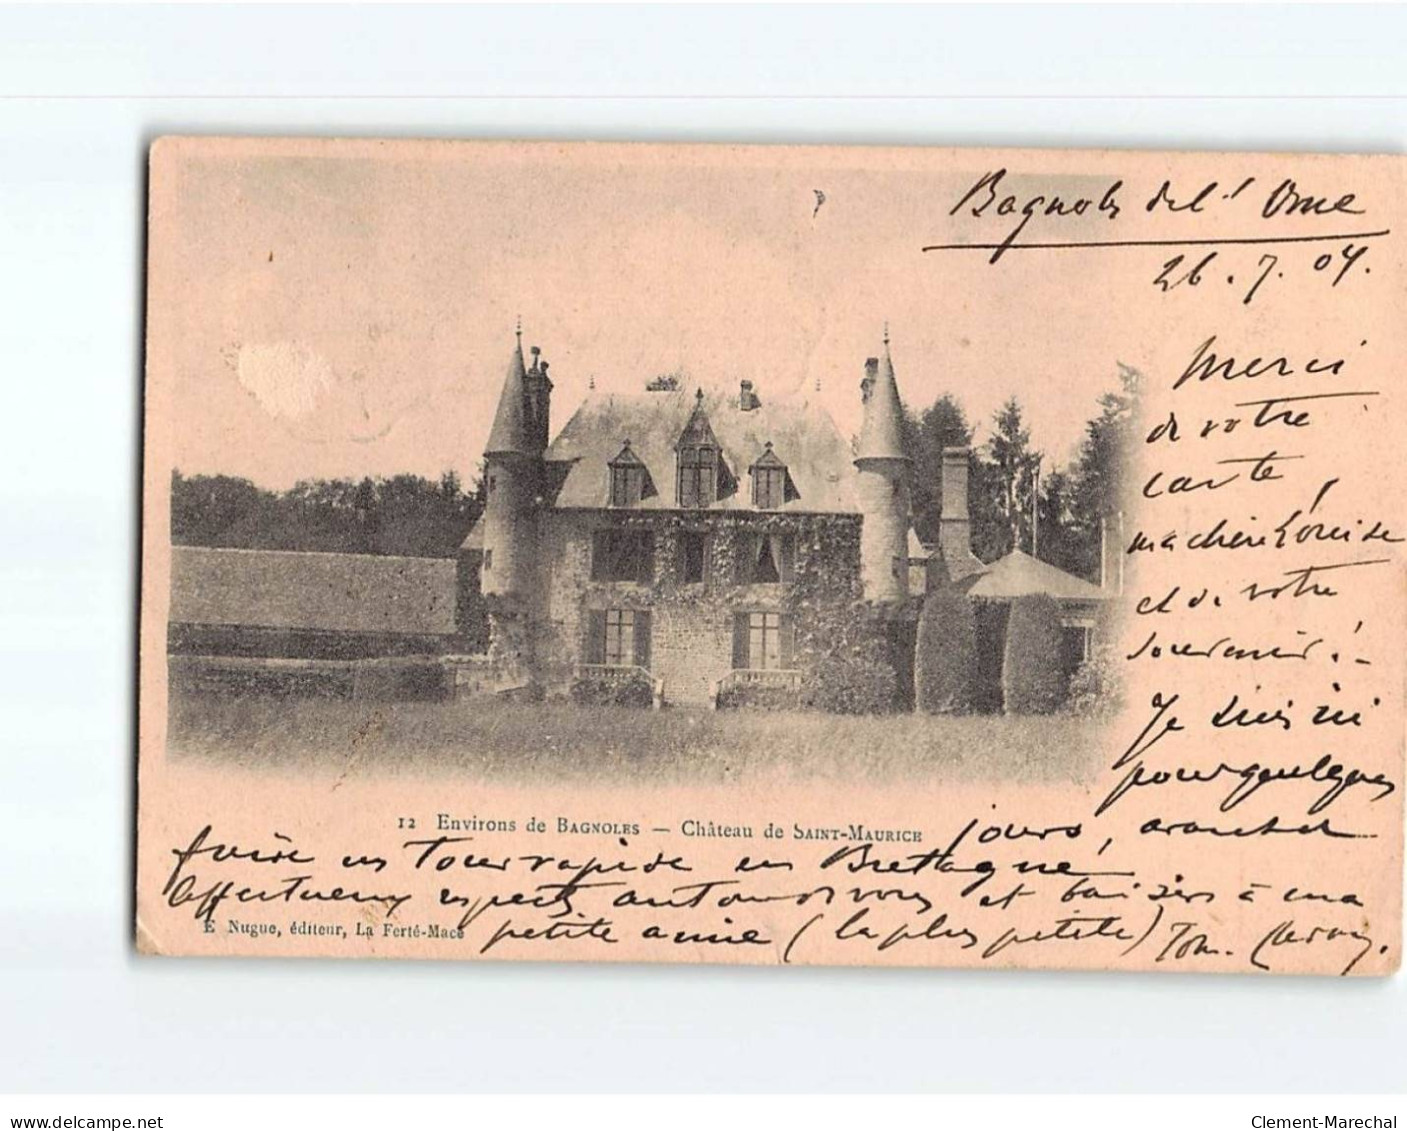 Bagnoles de l'Orne
26.7.04.
Merci
de votre
carte,
ma chère Louise
et de votre
souvenir! -
Je suis ici
pour quelques
jours, avant de
12 Environs de BAGNOLES — Château de SAINT-MAURICE
faire un Tour rapide en Bretagne
Affectueux respects autour de vous et baisers à ma
petite amie (la plus petite)
E Nugue, éditeur, La Ferté-Macé
www.delcampe.net
Clement-Marechal